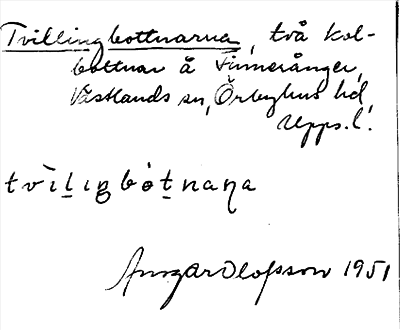 Tvillingbottnarna, två kol-
bottnar å Finnerånger,
Västlands sn, Örbyhus hd,
Upps.l.
tvìlıŋbótnaɳa
Ansgar Olofsson 1951